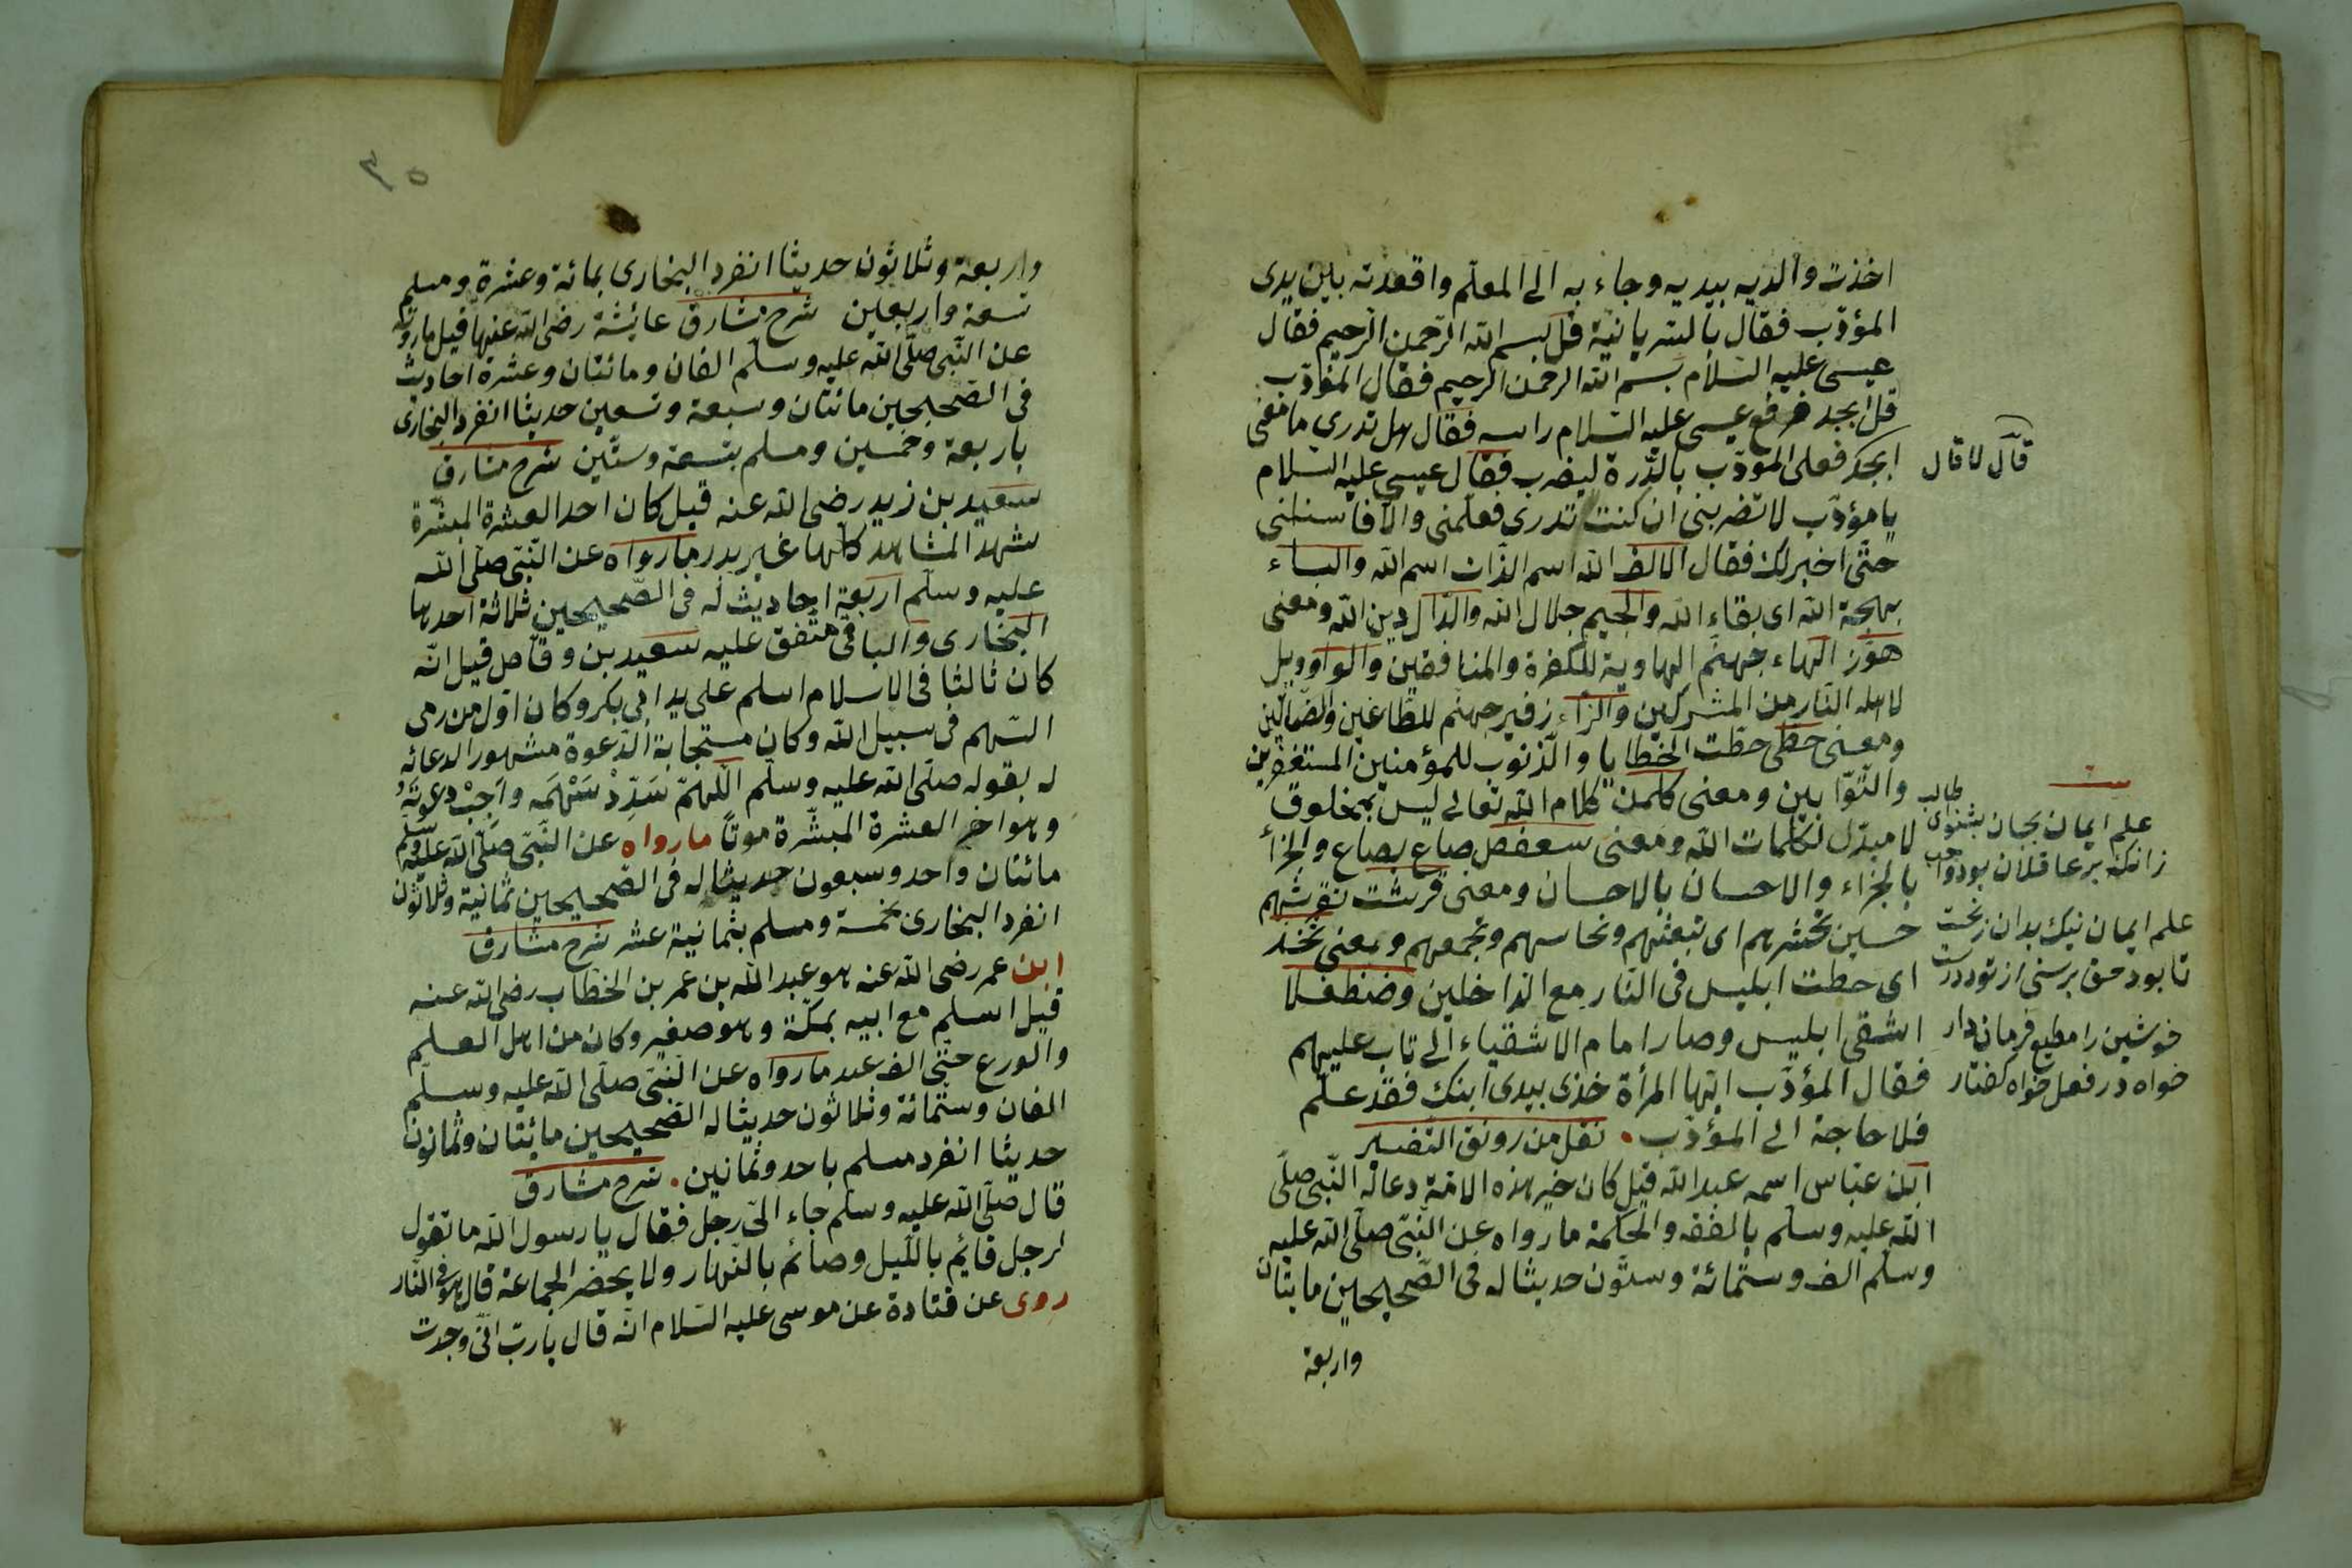 اخذت والديه بيديه وجاء به الى المعلّم واقعدته بين يدى
المؤدّب فقال بالسّريانيّة قل بسم الله الرّحمن الرّحيم فقال
عيسى عليه السّلام بسم الله الرحمن الرحيم فقال المؤدّب
قل ابجد فرفع عيسى عليه السّلام راسه فقال هل تدرى ما معنى
ابجد فعلى المؤدّب بالدّرة ليضرب فقال عيسى عليه السّلام
يا مؤدّب لا تضربنى ان كنت تدرى فعلّمنى والّا فاسئلنى
حتّى اخبرك فقال الالف الله اسم الذّات اسم الله والباء
بهجة الله اى بقاء الله والجيم جلال الله والدّال دين الله ومعنى
هوّز الهاء جهنّم الهاوية للكفرة والمنافقين والواو ويل
لاهل النّار من المشركين والزّاء زفير جهنّم للطّاغين والضّالّين
ومعنى حطى حطّت الخطايا والذّنوب للمؤمنين المستغفرين
والتّوّابين ومعنى كلمن كلام الله تعالى ليس بمخلوق
لا مبدّل لكلمات الله ومعنى سعفص صاع بصاع والجزأ
بالجزاء والاحسان بالاحسان ومعنى قرشت نقرشهم
حسين نحشرهم اى نبعثهم ونحاسبهم ونجمعهم ومعنى ثخذ
اى حطت ابليس فى النّار مع الدّاخلين وضظغلا
اشقى ابليس وصار امام الاشقياء الى تاب عليهم
فقال المؤدّب ايّتها المرأة خذى بيدى ابنك فقد علم
فلا حاجة الى المؤدّب. نقل من رونق التّفسير
ابن عبّاس اسمه عبد الله قيل كان خير هذه الامّة دعا له النّبى صلّى
الله عليه وسلّم بالفقه والحكمة ما رواه عن النّبىّ صلّى الله عليه
وسلّم الف وستّمائة وستّون حديثا له فى الصّحيحين مايتان
واربعة
قال لا قال
علم ايمان بجان بشنواى طالب
زانكه بر عاقلان بود واجب
علم ايمان نيك بدان ز نخست
تا بود حق پرستى از تو درست
خويشين را مطيع فرمان دار
خواه در فعل خواه كفتار
واربعة وثلاثون حديثا انفرد البخارى بمائة وعشرة ومسلم
تسعة واربعين شرح مشارق عائشة رضى الله عنها قيل ما روته
عن النّبى صلّى الله عليه وسلّم الفان ومائتان وعشرة احاديث
فى الصّحيحين مائتان وسبعة وتسعين حديثا انفرد البخارى
باربعة وخمسين ومسلم بتسعة وستّين شرح مشارق
سعيد بن زيد رضى الله عنه قيل كان احد العشرة المبشّرة
شهد المشاهد كلها غير بدر ما رواه عن النّبى صلّى الله
عليه وسلّم اربعة احاديث له فى الصّحيحين ثلاثة احدها
البخارى والباقى متّفق عليه سعيد بن وقّاص قيل انّه
كان ثالثا فى الاسلام اسلم على يد ابى بكر وكان اوّل من رمى
السّهم فى سبيل الله وكان مستجابة الدّعوة مشهورا لدعائه
له بقوله صلّى الله عليه وسلّم اللّهمّ سَدِّدْ سَهْمَه واَجِبْ دعوتَهُ
وهو اخر العشرة المبشّرة موتًا ما رواه عن النّبىّ صلّى الله عليه وسلّم
مائتان واحد وسبعون حديثا له فى الصّحيحين ثمانية وثلاثون
انفرد البخارى بخمسة ومسلم بثمانية عشر شرح مشارق
ابن عمر رضى الله عنه هو عبد الله بن عمر بن الخطاب رضى الله عنه
قيل اسلم مع ابيه بمكّة وهو صغير وكان من اهل العلم
والورع حتّى الف عبد ما رواه عن النّبىّ صلّى الله عليه وسلّم
الفان وستّمائة وثلاثون حديثا له الصّحيحين مائتان وثمانون
حديثا انفرد مسلم باحد وثمانين. شرح مشارق
قال صلّى الله عليه وسلّم جاء الىّ رجل فقال يا رسول الله ما تقول
لرجل قايم باللّيل وصائم بالنّهار ولا يحضر الجماعة قال هو فى النّار
روى عن قتادة عن موسى عليه السّلام انّه قال يا ربّ انّى وجدت